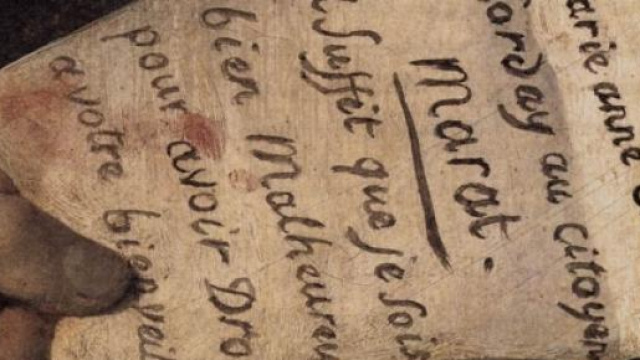 arie anne
orday au Citoyen
Marat.
Suffit que je Sois
bien Malheureu
pour avoir Dro
a votre bienveil